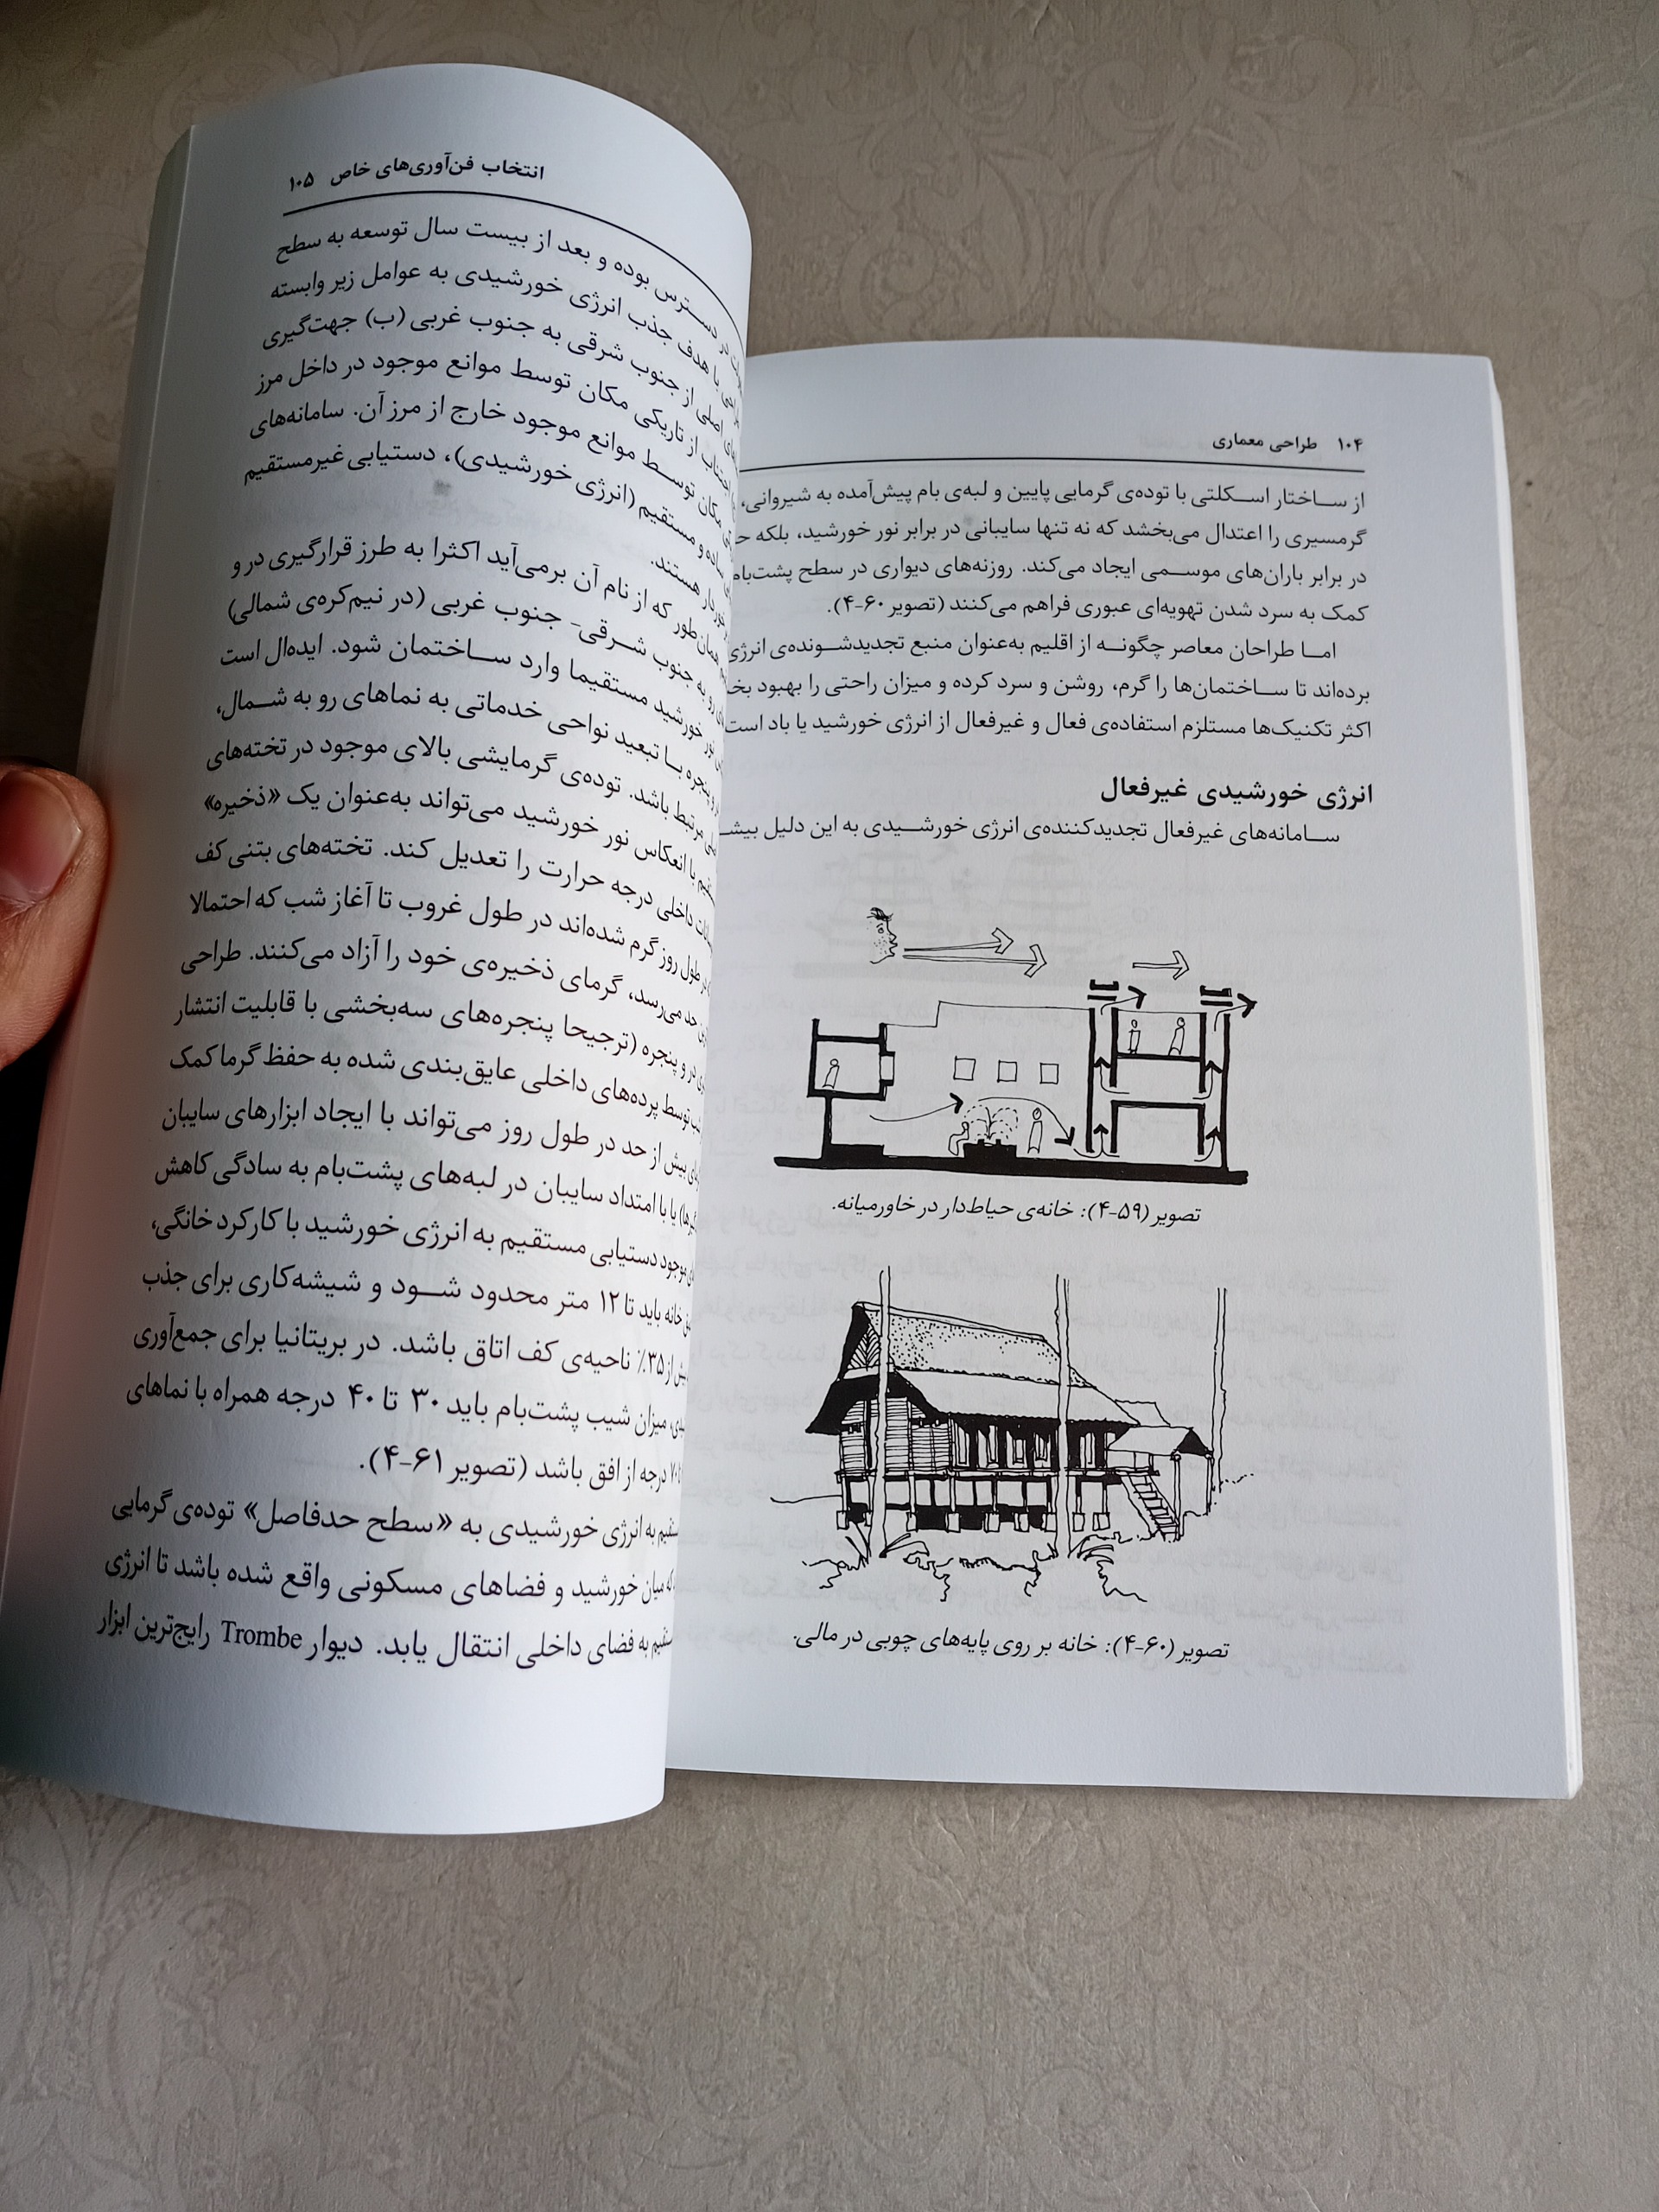 ۱۰۴ طراحی معماری
از ساختار اسکلتی با توده‌ی گرمایی پایین و لبه‌ی بام پیش‌آمده به شیروانی،
گرمسیری را اعتدال می‌بخشد که نه تنها سایبانی در برابر نور خورشید، بلکه
در برابر باران‌های موسمی ایجاد می‌کند. روزنه‌های دیواری در سطح پشت‌بام
کمک به سرد شدن تهویه‌ای عبوری فراهم می‌کنند (تصویر ۶۰-۴).
اما طراحان معاصر چگونه از اقلیم به‌عنوان منبع تجدیدشونده‌ی انرژی
برده‌اند تا ساختمان‌ها را گرم، روشن و سرد کرده و میزان راحتی را بهبود
اکثر تکنیک‌ها مستلزم استفاده‌ی فعال و غیرفعال از انرژی خورشید یا باد است
انرژی خورشیدی غیرفعال
سامانه‌های غیرفعال تجدیدکننده‌ی انرژی خورشیدی به این دلیل
تصویر (۵۹-۴): خانه‌ی حیاط‌دار در خاورمیانه.
تصویر (۶۰-۴): خانه بر روی پایه‌های چوبی در مالی.
انتخاب فن‌آوری‌های خاص ۱۰۵
دسترس بوده و بعد از بیست سال توسعه به سطح
با هدف جذب انرژی خورشیدی به عوامل زیر وابسته
از جنوب شرقی به جنوب غربی (ب) جهت‌گیری
از تاریکی مکان توسط موانع موجود در داخل مرز
مکان توسط موانع موجود خارج از مرز آن. سامانه‌های
ساده و مستقیم (انرژی خورشیدی)، دستیابی غیرمستقیم
هستند.
که از نام آن برمی‌آید اکثرا به طرز قرارگیری در و
رو به جنوب شرقی- جنوب غربی (در نیم‌کره‌ی شمالی)
نور خورشید مستقیما وارد ساختمان شود. ایده‌ال است
پنجره با تبعید نواحی خدماتی به نماهای رو به شمال،
مرتبط باشد. توده‌ی گرمایشی بالای موجود در تخته‌های
با انعکاس نور خورشید می‌تواند به‌عنوان یک «ذخیره»
داخلی درجه حرارت را تعدیل کند. تخته‌های بتنی کف
طول روز گرم شده‌اند در طول غروب تا آغاز شب که احتمالا
حد می‌رسد، گرمای ذخیره‌ی خود را آزاد می‌کنند. طراحی
در و پنجره (ترجیحا پنجره‌های سه‌بخشی با قابلیت انتشار
توسط پرده‌های داخلی عایق‌بندی شده به حفظ گرما کمک
بیش از حد در طول روز می‌تواند با ایجاد ابزارهای سایبان
یا با امتداد سایبان در لبه‌های پشت‌بام به سادگی کاهش
موجود دستیابی مستقیم به انرژی خورشید با کارکرد خانگی،
خانه باید تا ۱۲ متر محدود شود و شیشه‌کاری برای جذب
از ۳۵٪ ناحیه‌ی کف اتاق باشد. در بریتانیا برای جمع‌آوری
میزان شیب پشت‌بام باید ۳۰ تا ۴۰ درجه همراه با نماهای
درجه از افق باشد (تصویر ۶۱-۴).
به انرژی خورشیدی به «سطح حدفاصل» توده‌ی گرمایی
میان خورشید و فضاهای مسکونی واقع شده باشد تا انرژی
به فضای داخلی انتقال یابد. دیوار Trombe رایج‌ترین ابزار